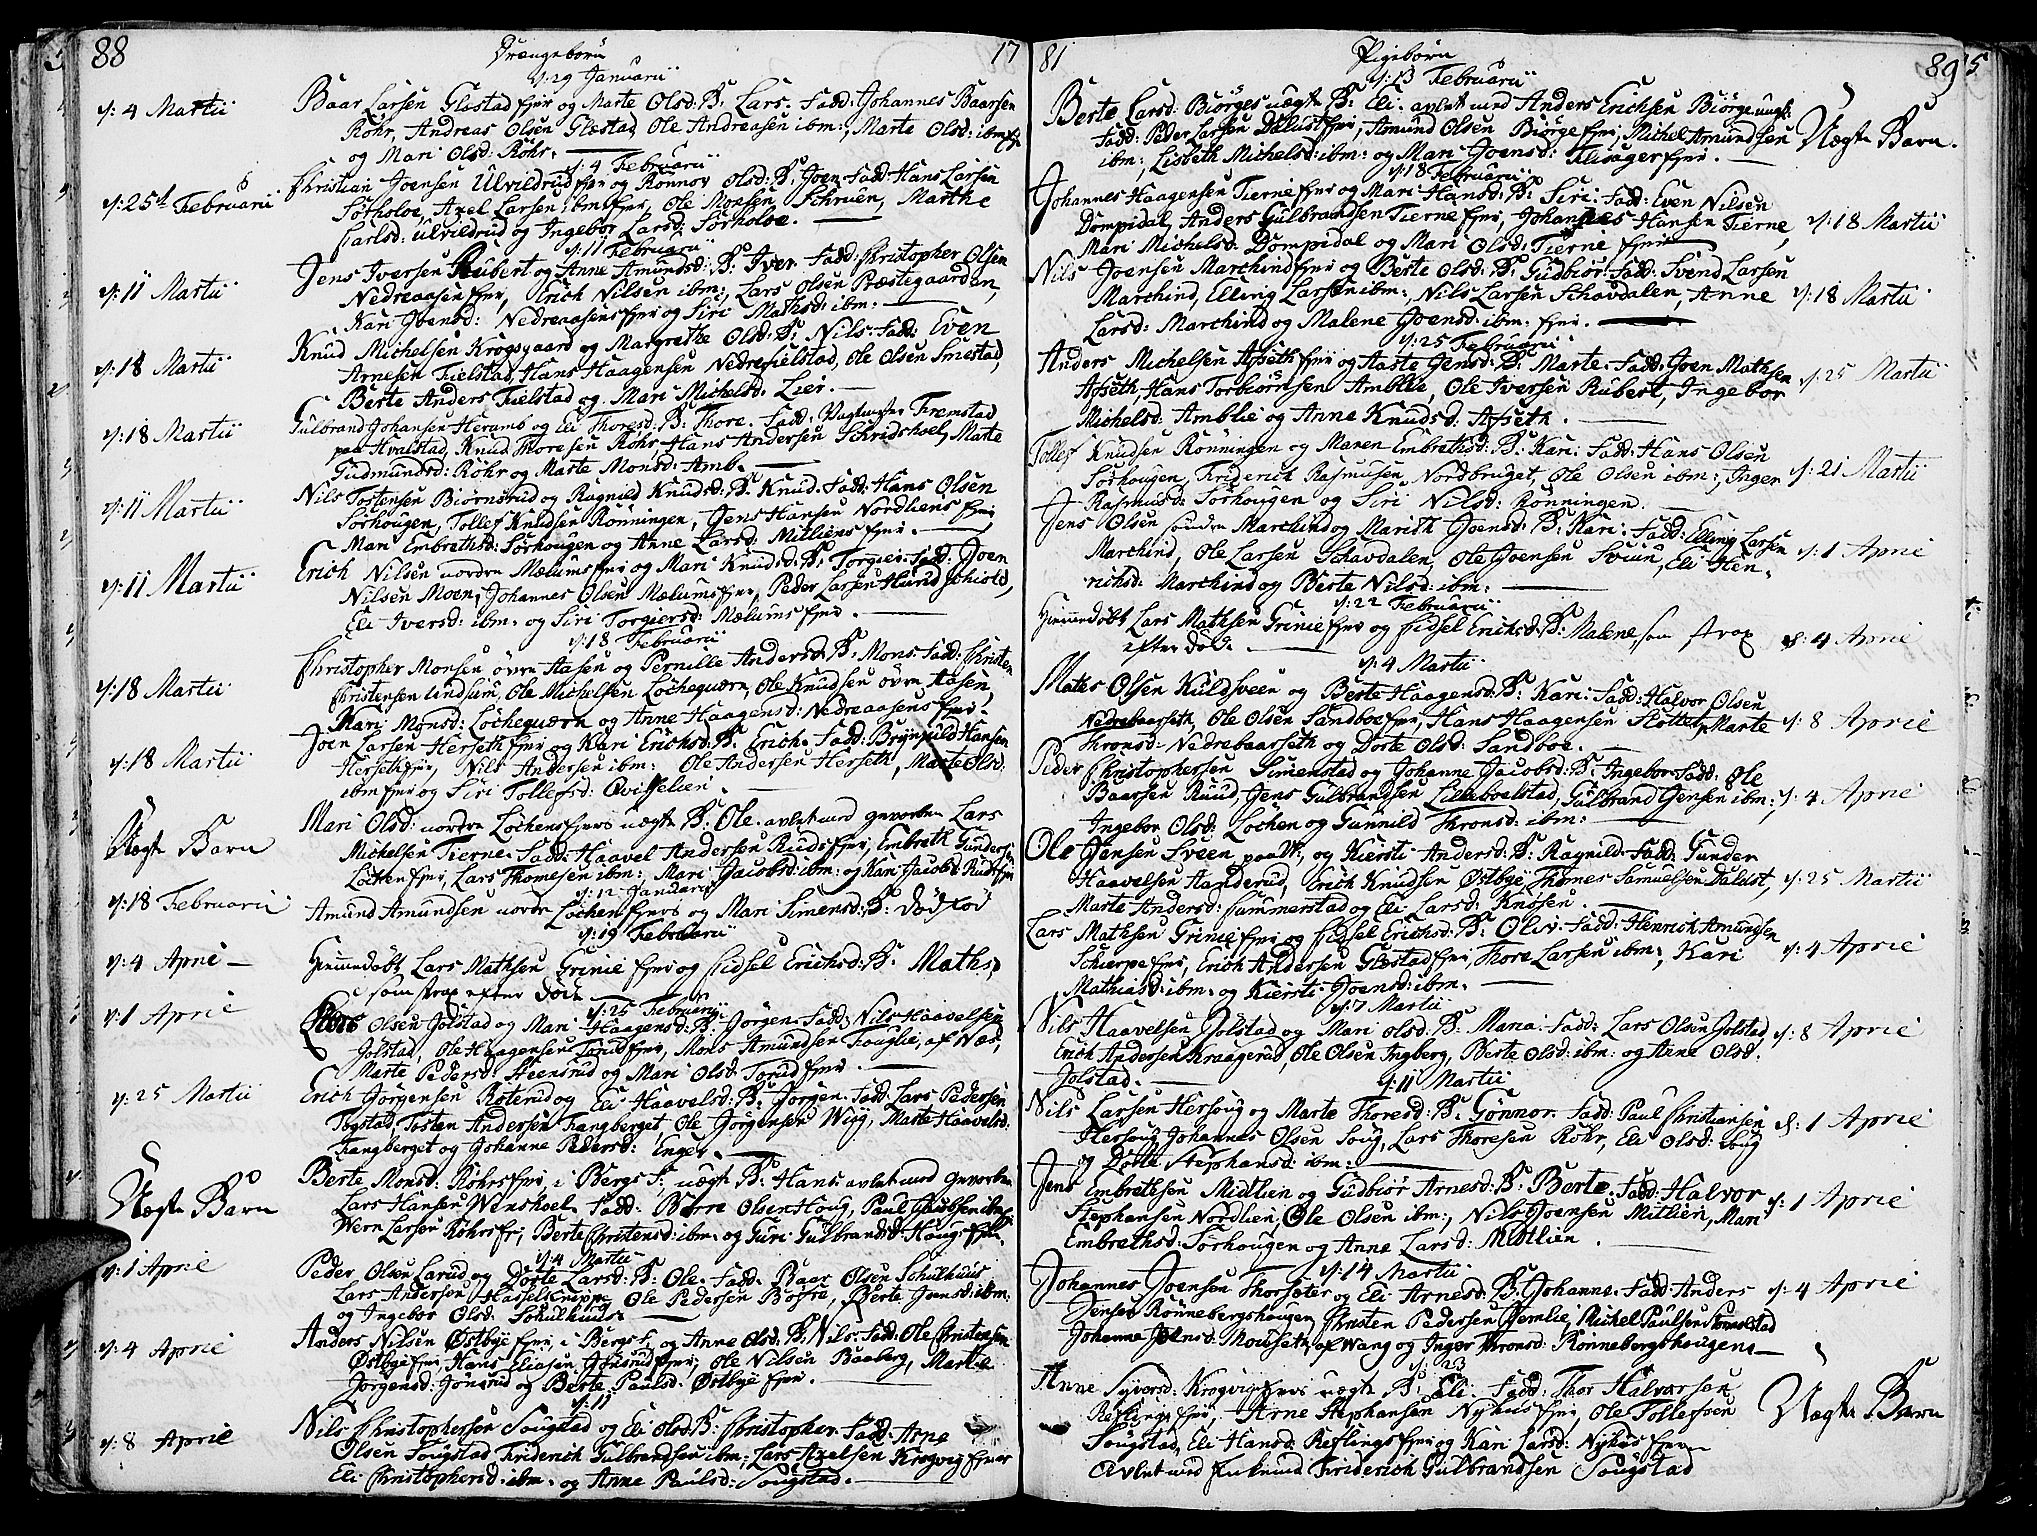 88
Drængebørn
17
d: 29 Januarii
d: 4 Martii
Baar Larsen Glæstad fjer og Marte Olsd: B: Lars. Fadd: Johannes Baarsen
Røhr, Andreas Olsen Glæstad, Ole Andreasen ibm:, Marte Olsd: ibm
og Mari Olsd: Røhr.
d: 4 Februarii
d: 25 Februarii
Christian Joensen Ulvildrud fjer og Rønnov Olsd: B: Joen. Fadd: Hans Larsen
Sørholoe, Axel Larsen ibm fjer, Ole Monsen Schruen, Marthe
Carlsd: Ulvildrud og Ingebor Larsd: Sørholoe.
d: 11 Februarii
d: 11 Martii
Jens Iversen Rubert og Anne Amundsd: B: Iver. Fadd: Christopher Olsen
Nedreaasen fjer, Erich Nilsen ibm:, Lars Olsen Præstegaarden,
Kari Joensd: Nedreaasens fjer og Siri Mathsd: ibm.
d: 18 Martii
Knud Michelsen Krogsgaard og Margrethe Olsd: B: Nils. Fadd: Even
Arnesen Fielstad, Hans Haagensen Nedrefielstad, Ole Olsen Smestad,
Berte Anders Fielstad og Mari Michelsd: Lier.
d: 18 Martii
Gulbrand Johansen Heramb og Eli Thoresd: B: Thore. Fadd: Fremstad
paa Hvalstad, Knud Thoresen Røhr, Hans Andersen Schridshoel, Marte
Gudmundsd: Røhr og Marte Monsd: Amb.
d: 11 Martii
Nils Tostensen Biørnsrud og Ragnild Knudsd: B: Knud. Fadd: Hans Olsen
Sørhougen, Tollef Knudsen Rønningen, Jens Hansen Nordliens fjer
Mari Embrethsd: Sørhougen og Anne Larsd: Mitliens fjer.
d: 11 Martii
Erich Nilsen nordre Mælums fjer og Mari Knudsd: B: Torgier. Fadd: Joen
Nilsen Moen, Johannes Olsen Mælums fjer, Peder Larsen Hundschiold,
Eli Iversd: ibm: og Siri Torgiersd: Mælums fjer.
d: 18 Februarii
d: 18 Martii
Christopher Monsen øvre Aasen og Pernille Andersd: B: Mons. Fadd: Christen
Christensen Undsum, Ole Michelsen Løcheqværn, Ole Knudsen øvre Aasen,
Mari Monsd: Løcheqværn og Anne Haagensd: Nedreaasens fjer.
d: 18 Martii
Joen Larsen Herseth fjer og Kari Erichsd: B: Erich. Fadd: Brynild Hansen
Herseth fjer, Nils Andersen ibm: Ole Andersen Herseth, Marte Olsd:
ibm fjer og Siri Tollefsd: Qvisselien.
Uægte Barn
Mari Olsd: nordre Løchens fjers uægte B: Ole. avlet med Lars
Michelsen Tierne. Fadd: Haavel Andersen Ruds fjer, Embreth Gundersen
Løcken fjer, Lars Thomesen ibm:, Mari Jacobsd: ibm: og Kari Jacobsd: Ruds fjer
d: 12 Januarii
d: 18 Februarii
Amund Amundsen nordre Løchen fjers og Mari Simensd: B: død fød
d: 19 Februarii
d: 4 April
Hiemmedøbt Lars Mathsen Grinie fjer og Sidsel Erichsd: B: Maths,
som strax efter døde
d: 25 Februarii
d: 1 April
Olsen Jolstad og Mari Haagensd: B: Jørgen. Fadd: Nils Haavelsen
Jolstad, Ole Haagensen Torud fjer, Mons Amundsen Fouglie, af Næs,
Marte Pedersd: Steensrud og Mari Olsd: Torud fjer.
d: 25 Martii
Erich Jørgensen Roterud og Eli Haavelsd: B: Jørgen. Fadd: Lars Pedersen
Togstad, Tosten Andersen Frangberget, Ole Jørgensen Wiig, Marte Haavelsd:
Frangberget og Johanne Pedersd: Enger.
Uægte Barn
Berte Monsd: Røhrs fjer, i Bergs S: uægte B: Hans avlet med
Lars Hansen Winskoel. Fadd: Børre Olsen Houg, Paul
Wern Larsen Røhrs fjer, Berte Christensd: ibm. og Guri Gulbrandsd: Hougs fjer.
d: 4 Martii
d: 1 April
Peder Olsen Larud og Dorte Larsd: B: Ole. Fadd: Baar Olsen Schulhuus
Lars Andersen Hasselknippe, Ole Pedersen Bofre, Berte Joensd: ibm.
og Ingebor Olsd: Schulhuus.
d: 4 April
Anders Nilsen Østbye fjer, i Bergs S: og Anne Olsd: B: Nils. Fadd: Ole Christensen
Østbye fjer, Hans Eliasen Jønsrud fjer, Ole Nilsen Baaberg, Marte
Jørgensd: Jønsrud og Berte Paulsd: Østbye fjer.
d: 11
d: 8 April
Nils Christophersen Sougstad og Eli Olsd: B: Christopher. Fadd: Arne
Olsen Sougstad, Friderich Gulbrandsen ibm:, Lars Axelsen Krogvig fjer
Eli Christophersd: ibm. og Anne Paulsd: Sougstad.
81
Pigebørn
89
d: 13 Februarii
Berte Larsd: Biørges uægte B: Eli. avlet med Anders Erichsen Biørge ungk:
Fadd: Peder Larsen Dælust fjer, Amund Olsen Biørge fjer, Michel Amundsen
ibm:, Lisbeth Michelsd: ibm: og Mari Joensd: Flisager fjer.
Uægte Barn.
d: 18 Februarii
Johannes Haagensen Tierne fjer og Mari Hansd: B: Siri. Fadd: Even Nilsen
Dompidal, Anders Gulbrandsen Tierne fjer, Johannes Hansen Tierne,
Mari Michelsd: Dompidal og Mari Olsd: Tierne fjer
d: 18 Martii
Nils Joensen Marchind fjer og Berte Olsd: B: Gudbiør. Fadd: Svend Larsen
Marchind, Elling Larsen ibm:, Nils Larsen Schavdalen, Anne
Larsd: Marchind og Malene Joensd: ibm. fjer.
d: 18 Martii
d: 25 Februarii
Anders Michelsen Afseth fjer og Aaste Jensd: B: Marte. Fadd: Joen Mathsen
Afseth, Hans Torbiørnsen Amblie, Ole Iversen Rubert, Ingebor
Michelsd: Amblie og Anne Knudsd: Afseth.
d: 25 Martii
Tollef Knudsen Rønningen og Maren Embrethsd: B: Kari. Fadd: Hans Olsen
Sørhougen, Friderich Rasmusen Nordbruget, Ole Olsen ibm:, Inger
Rasmusd: Sørhougen og Siri Nilsd: Rønningen.
d: 21 Martii
Jens Olsen søndre Marchind og Marith Joensd: B: Kari. Fadd: Elling Larsen
Marchind, Ole Larsen Schavdalen, Ole Joensen Sviun, Eli Hen-
richsd: Marchind og Berte Nilsd: ibm:
d: 1 April
d: 22 Februarii
Hiemmedøbt Lars Mathsen Grinie fjer og Sidsel Erichsd: B: Malene, som strax
efter døde.
d: 4 April
d: 4 Martii
Mathis Olsen Kuldsveen og Berte Haagensd: B: Kari. Fadd: Halvor Olsen
Nedrebaarseth, Ole Olsen Sandboe fjer, Hans Haagensen Slotten, Marte
Thronsd: Nedrebaarseth og Dorte Olsd: Sandboe.
d: 8 April
Peder Christophersen Simenstad og Johanne Jacobsd: B: Ingebor. Fadd: Ole
Baarsen Ruud, Jens Gulbrandsen Lilleboelstad, Gulbrand Jensen ibm:,
Ingebor Olsd: Løchen og Gunnild Thronsd: ibm:
d: 4 April
Ole Jensen Sveen og Kiersti Andersd: B: Ragnild. Fadd: Gunder
Haavelsen Aanderud, Erich Knudsen Østbye, Thomes Samuelsen Dælust,
Marte Andersd: Hammerstad og Eli Larsd: Knosen.
d: 25 Martii
Lars Mathsen Grinie fjer og Sidsel Erichsd: B: Oliv. Fadd: Henrich Amundsen
Schierpe fjer, Erich Andersen Glæstad fjer, Thore Larsen ibm:, Kari
Mathiasd: ibm: og Kiersti Joensd: ibm.
d: 4 April
d: 7 Martii
Nils Haavelsen Jolstad og Mari Olsd: B: Maria. Fadd: Lars Olsen Jolstad,
Erich Andersen Kraagerud, Ole Olsen Ingberg, Berte Olsd: ibm: og Anne Olsd:
Jolstad.
d: 8 April
d: 11 Martii
Nils Larsen Hersoug og Marte Thoresd: B: Gønnor. Fadd: Paul Christiansen
Hersoug, Johannes Olsen Soug, Lars Thoresen Røhr, Eli Olsd: Soug
og Dorte Stephansd: ibm:
d: 1 April
Jens Embrethsen Midtlien og Gudbiør Arnesd: B: Berte. Fadd: Halvor
Stephansen Nordlien, Ole Olsen ibm:, Nils Joensen Mitlien, Mari
Embrethsd: Sørhougen og Anne Larsd: Midtlien.
d: 1 April
d: 14 Martii
Johannes Joensen Thorsæter og Eli Arnesd: B: Johanne. Fadd: Anders
Jensen Rønnebergshougen, Christen Pedersen Gemlie, Michel Paulsen
Johanne Jensd: Mouseth, af Wang og Inger Thronsd: Rønnebergshougens
d: 4 April
d: 23
Anne Syversd: Krogvig fjers uægte B: Eli. Fadd: Thor Halvorsen
Reflings fjer, Arne Stephansen Nyhus fjer, Ole Tollefsen
Sougstad, Eli Hansd: Reflings fjer og Kari Larsd: Nyhus fjer
Avlet med Enkemd Friderich Gulbrandsen Sougstad
Uægte Barn